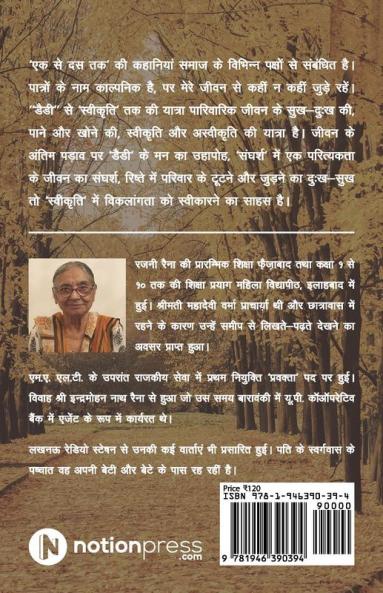 'एक से दस तक' की कहानियां समाज के विभिन्न पक्षों से संबंधित है।
पात्रों के नाम काल्पनिक है, पर मेरे जीवन से कहीं न कहीं जुड़े रहें।
"डैडी" से 'स्वीकृति' तक की यात्रा पारिवारिक जीवन के सुख–दुःख की,
पाने और खोने की, स्वीकृति और अस्वीकृति की यात्रा है। जीवन के
अंतिम पड़ाव पर 'डैडी' के मन का उहापोह, 'संघर्श' में एक परित्यकता
के जीवन का संघर्श, रिष्ते में परिवार के टूटने और जुड़ने का दुःख–सुख
तो 'स्वीकृति' में विकलांगता को स्वीकारने का साहस है।
रजनी रैना की प्रारम्भिक शिक्षा फैज़ाबाद तथा कक्षा १ से
१० तक की शिक्षा प्रयाग महिला विद्यापीठ, इलाहबाद में
हुई। श्रीमती महादेवी वर्मा प्राचार्या थी और छात्रावास में
रहने के कारण उन्हें समीप से लिखते–पढ़ते देखने का
अवसर प्राप्त हुआ।
एम.ए. एल.टी. के उपरांत राजकीय सेवा में प्रथम नियुक्ति 'प्रवक्ता' पद पर हुई।
विवाह श्री इन्द्रमोहन नाथ रैना से हुआ जो उस समय बारावंकी में यू.पी. कॉऑपरेटिव
बैंक में एजेंट के रूप में कार्यरत थे।
लखनऊ रेडियो स्टेषन से उनकी कई वार्ताएं भी प्रसारित हुई। पति के स्वर्गवास के
पष्चात वह अपनी बेटी और बेटे के पास रह रहीं है।
Price ₹120
ISBN 978-1-946390-39-4
90000
9 781946 390394
N notionpress
.com